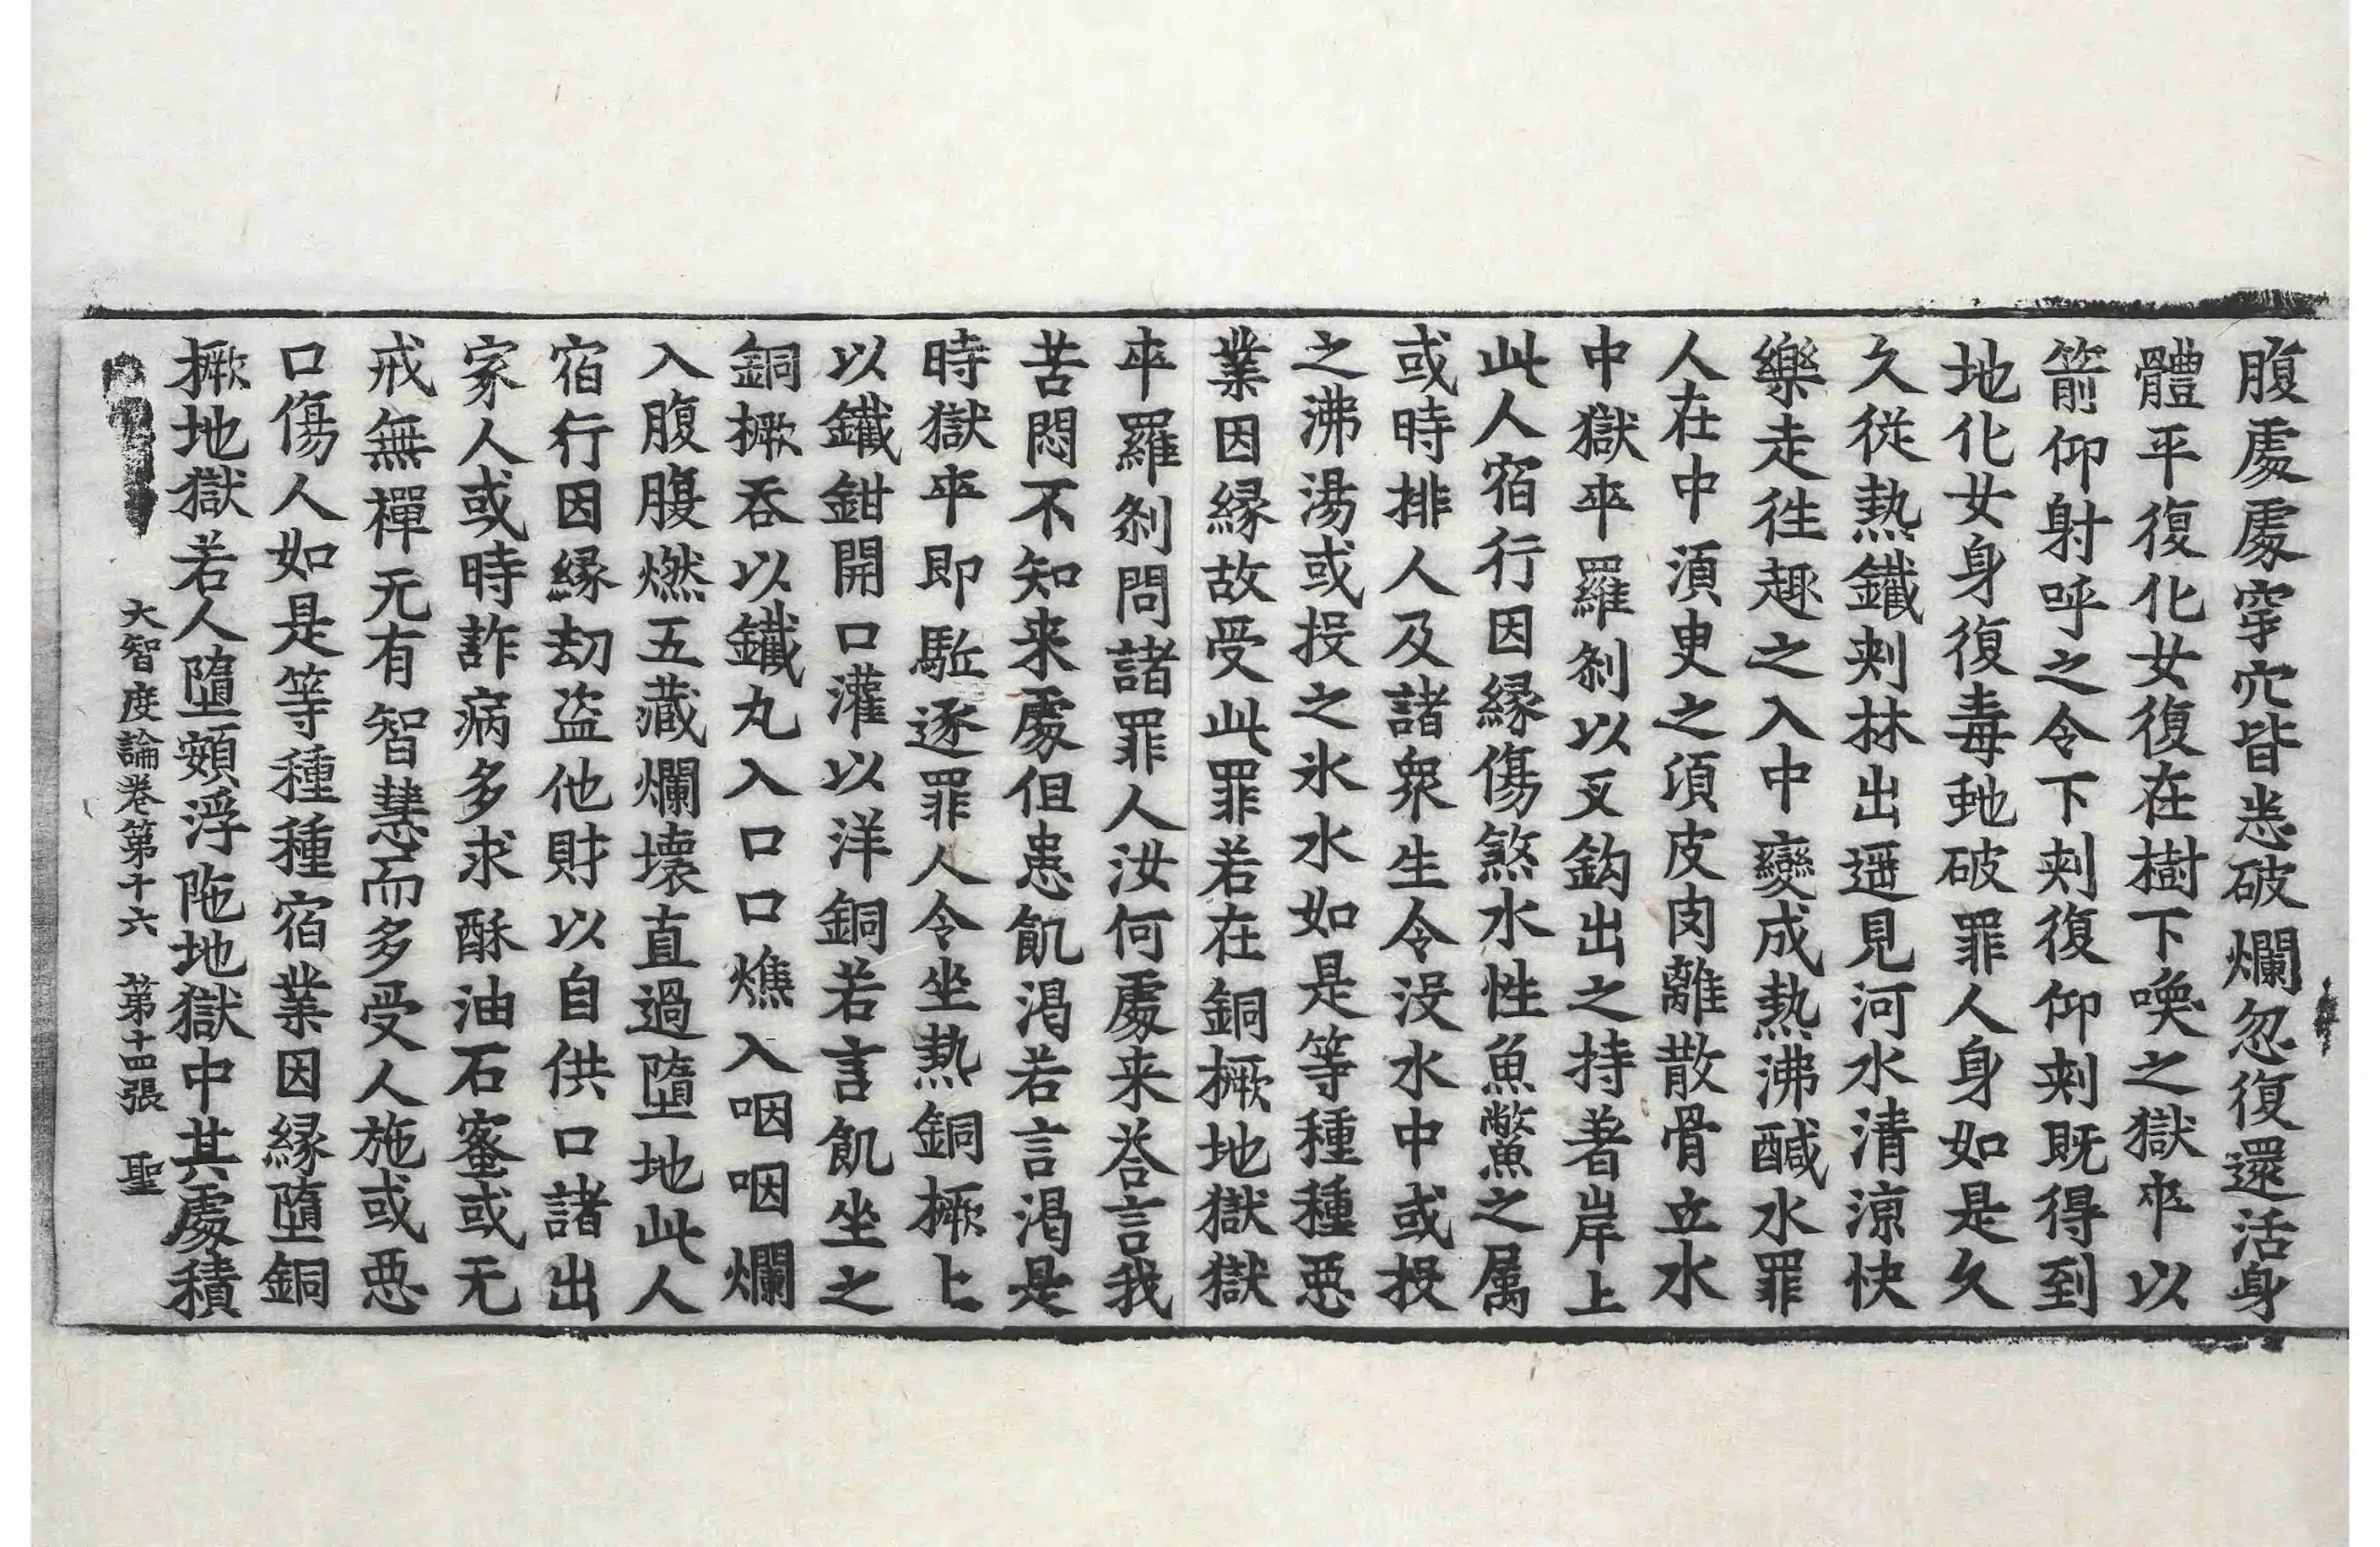 腹處處穿穴皆悉破爛忽復還活身
體平復化女復在樹下喚之獄卒以
箭仰射呼之令下刾復仰刾既得到
地化女身復毒虵破罪人身如是久
久從熱鐵刾林出遥見河水清涼快
樂走往趣之入中變成熱沸醎水罪
人在中湏臾之湏皮肉離散骨立水
中獄卒羅刹以叉鈎出之持著岸上
此人宿行因緣傷煞水性魚鱉之属
或時排人及諸衆生令没水中或投
之沸湯或投之氷水如是等種種惡
業因緣故受此罪若在銅橛地獄獄
卒羅刹問諸罪人汝何處来荅言我
苦悶不知来處但患飢渴若言渴是
時獄卒即駈逐罪人令坐熱銅橛上
以鐵鉗開口灌以洋銅若言飢坐之
銅橛吞以鐵丸入口口燋入咽咽爛
入腹腹燃五藏爛壞直過墮地此人
宿行因緣劫盗他財以自供口諸出
家人或時詐病多求酥油石蜜或无
戒無禪无有智慧而多受人施或惡
口傷人如是等種種宿業因緣墮銅
橛地獄若人墮頞浮陁地獄中其處積
大智度論卷第十六 第十四張 聖